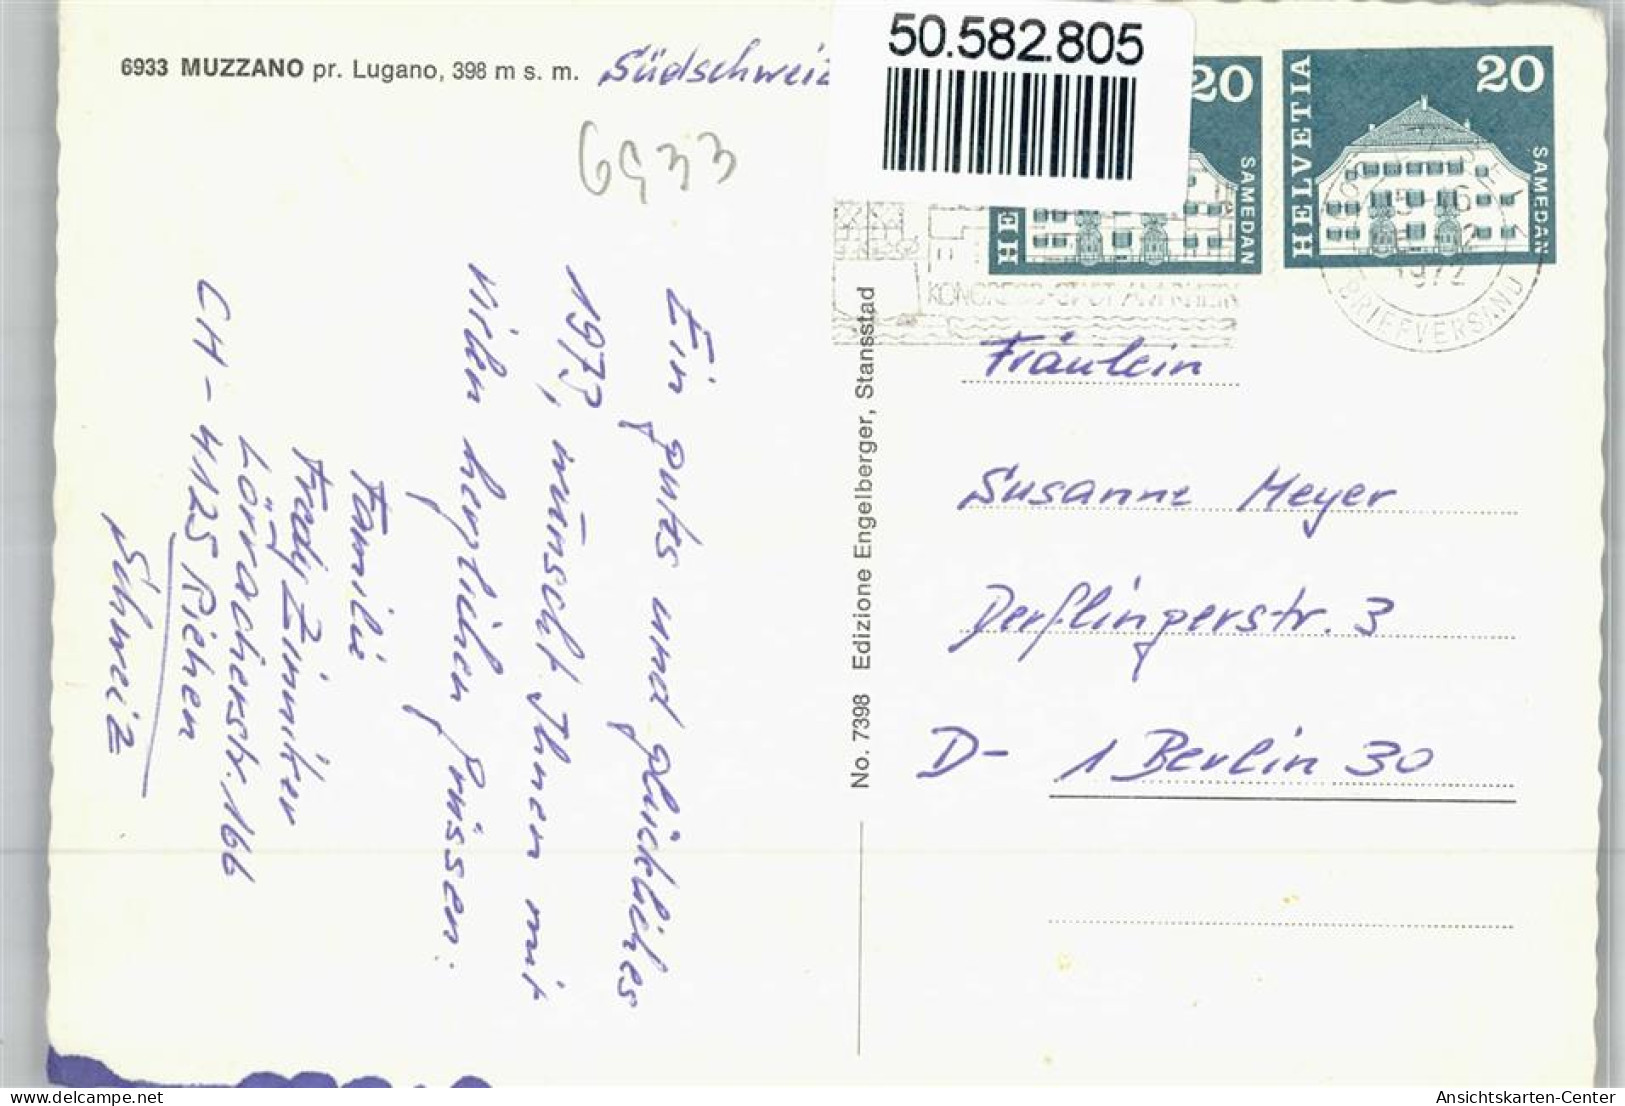 6933 MUZZANO pr. Lugano, 398 m s. m. Südschweiz
6933
Ein gutes und glückliches
1973, wünscht Ihnen mit
vielen herzlichen Grüssen:
Familie
Fredy Zimniker
Lörracherstr. 166
CH-4125 Riehen
Schweiz
No. 7398 Edizione Engelberger, Stansstad
50.582.805
20
HE
SAMEDAN
HELVETIA
20
SAMEDAN
KONGRESS-STADT AM RHEIN
1972
BRIEFVERSAND
Fräulein
Susanne Meyer
Derflingerstr. 3
D- 1 Berlin 30
Ansichtskarten-Center